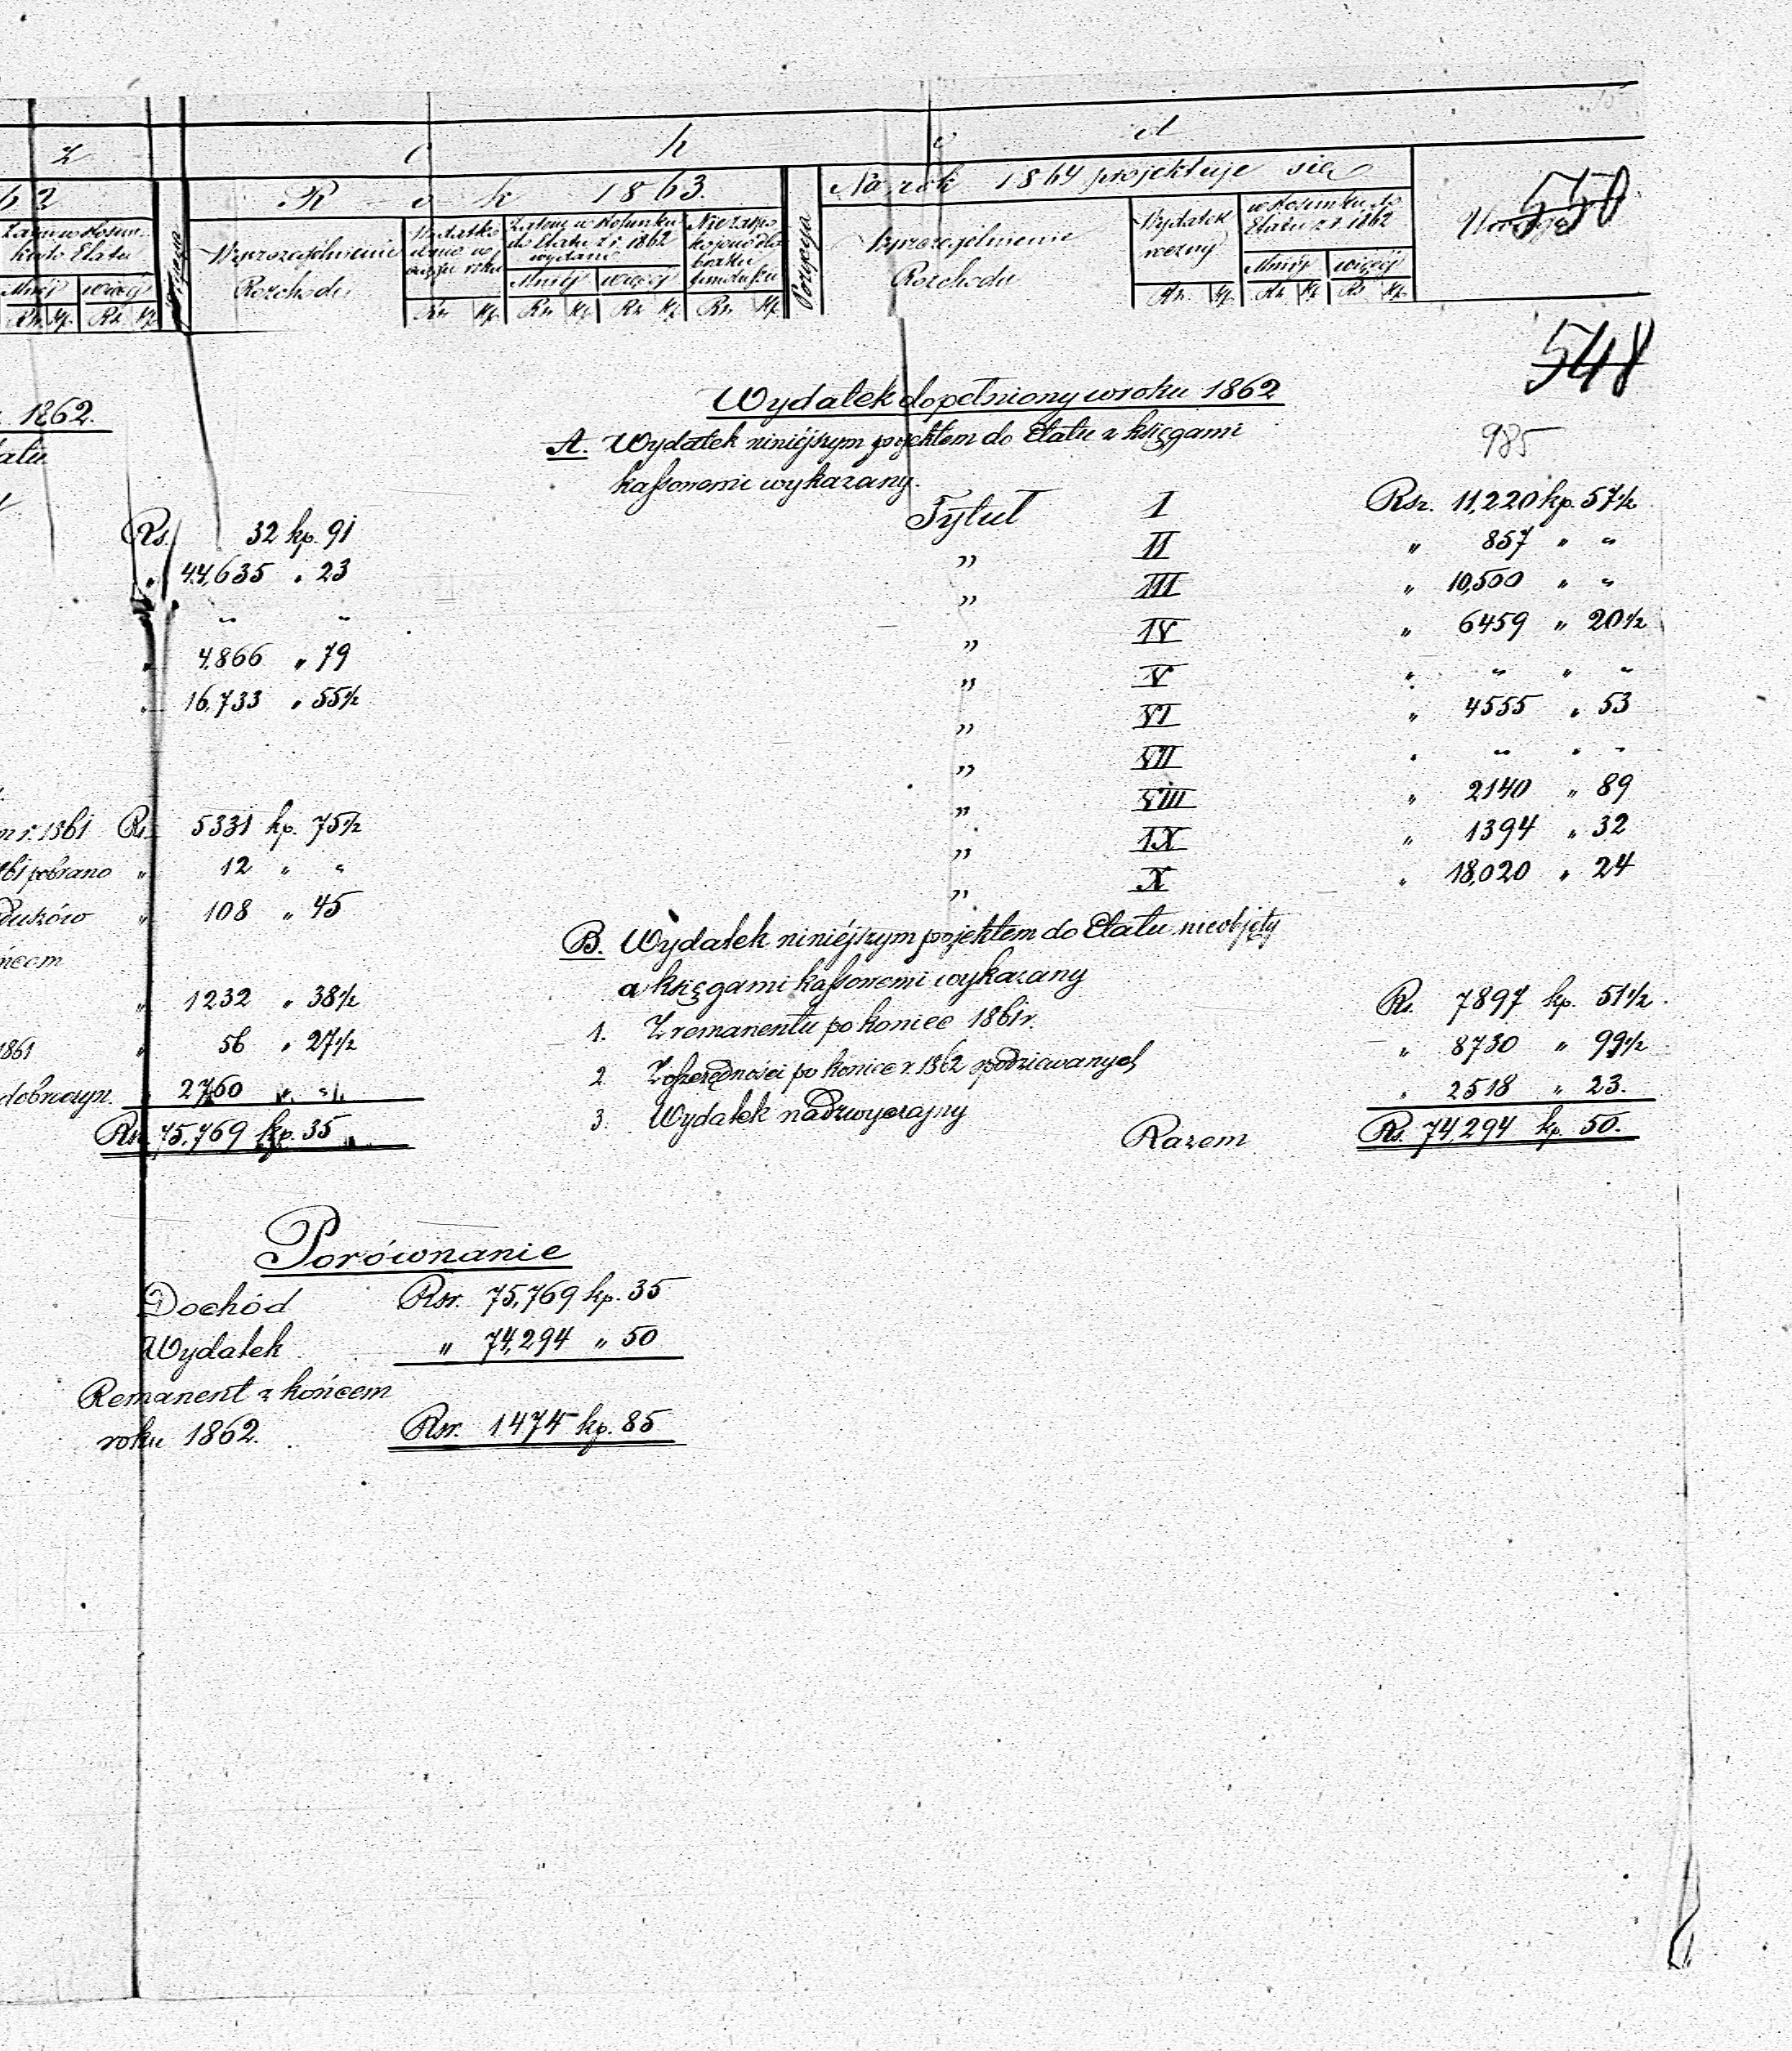 z c h o d
62 R o k 1863. Na rok 1864 projektuje się
550
w stosunku do
Etatu z r. 1862
Wyszczególnienie
Rozchodu
Zatem w stosunku
do Etatu z r. 1862
wydano
Mniéj więcéj
Nie zaspo
kojono dla
braku
funduszu
Pozycya
Wyszczególnienie
Rozchodu
Wydatek
roczny
Mniéj więcéj
Rs. kp. Rs. kp. Rs. kp. Rs. kp. Rs. kp. Rs. kp. Rs. kp. Rs. kp. Rs. kp.
548
1862.
985
Rs. 32 kp. 91
" 44,635 " 23
" "
" 4,866 " 79
" 16,733 " 55½
r. 1861 Rs. 5331 kp. 75½
pobrano " 12 " "
" 108 " 45
" 1232 " 38½
1861 " 56 " 27½
" 2760 " "
Rsr. 75,769 kp. 35
Wydatek dopełniony w roku 1862
A. Wydatek niniéjszym projektem do Etatu z księgami
kassowemi wykazany.
Tytuł I Rsr. 11,220 kp. 57½
" II " 857 " "
" III " 10,500 " "
" IV " 6459 " 20½
" V " " " "
" VI " 4555 " 53
" VII " " " "
" VIII " 2140 " 89
" IX " 1394 " 32
" X " 18,020 " 24
B. Wydatek niniéjszym projektem do Etatu nieobjęty
a księgami kassowemi wykazany
1. Z remanentu po koniec 1861 r. Rs. 7897 kp. 51½
2. Z oszczędności po koniec r. 1862 spodziewanych " 8730 " 99½
3. Wydatek nadzwyczajny " 2518 " 23.
Razem Rs. 74,294 kp. 50.
Porównanie
Dochód Rsr. 75,769 kp. 35
Wydatek " 74,294 " 50
Remanent z końcem
roku 1862. Rsr. 1474 kp. 85